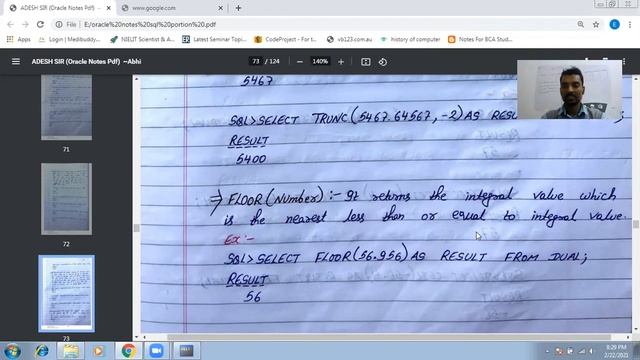 ADESH SIR (Oracle Notes Pdf) –Abhi
www.google.com
File | E:/oracle%20notes%20sql%20portion%20.pdf
Apps
Learn | Medibuddy...
NIELIT Scientist & A...
Latest Seminar Topi...
CodeProject - For t...
vb123.com.au
history of computer
Notes For BCA Stud...
ADESH SIR (Oracle Notes Pdf) –Abhi
73 / 124
140%
71
72
73
5467
SQL>SELECT TRUNC(5467.64567,-2)AS RESU
RESULT
5400
⇒ FLOOR(Number) :- It returns the integral value which
is the nearest less than or equal to integral value.
Ex :-
SQL>SELECT FLOOR(56.956)AS RESULT FROM DUAL;
RESULT
56
8:29 PM
2/22/2021